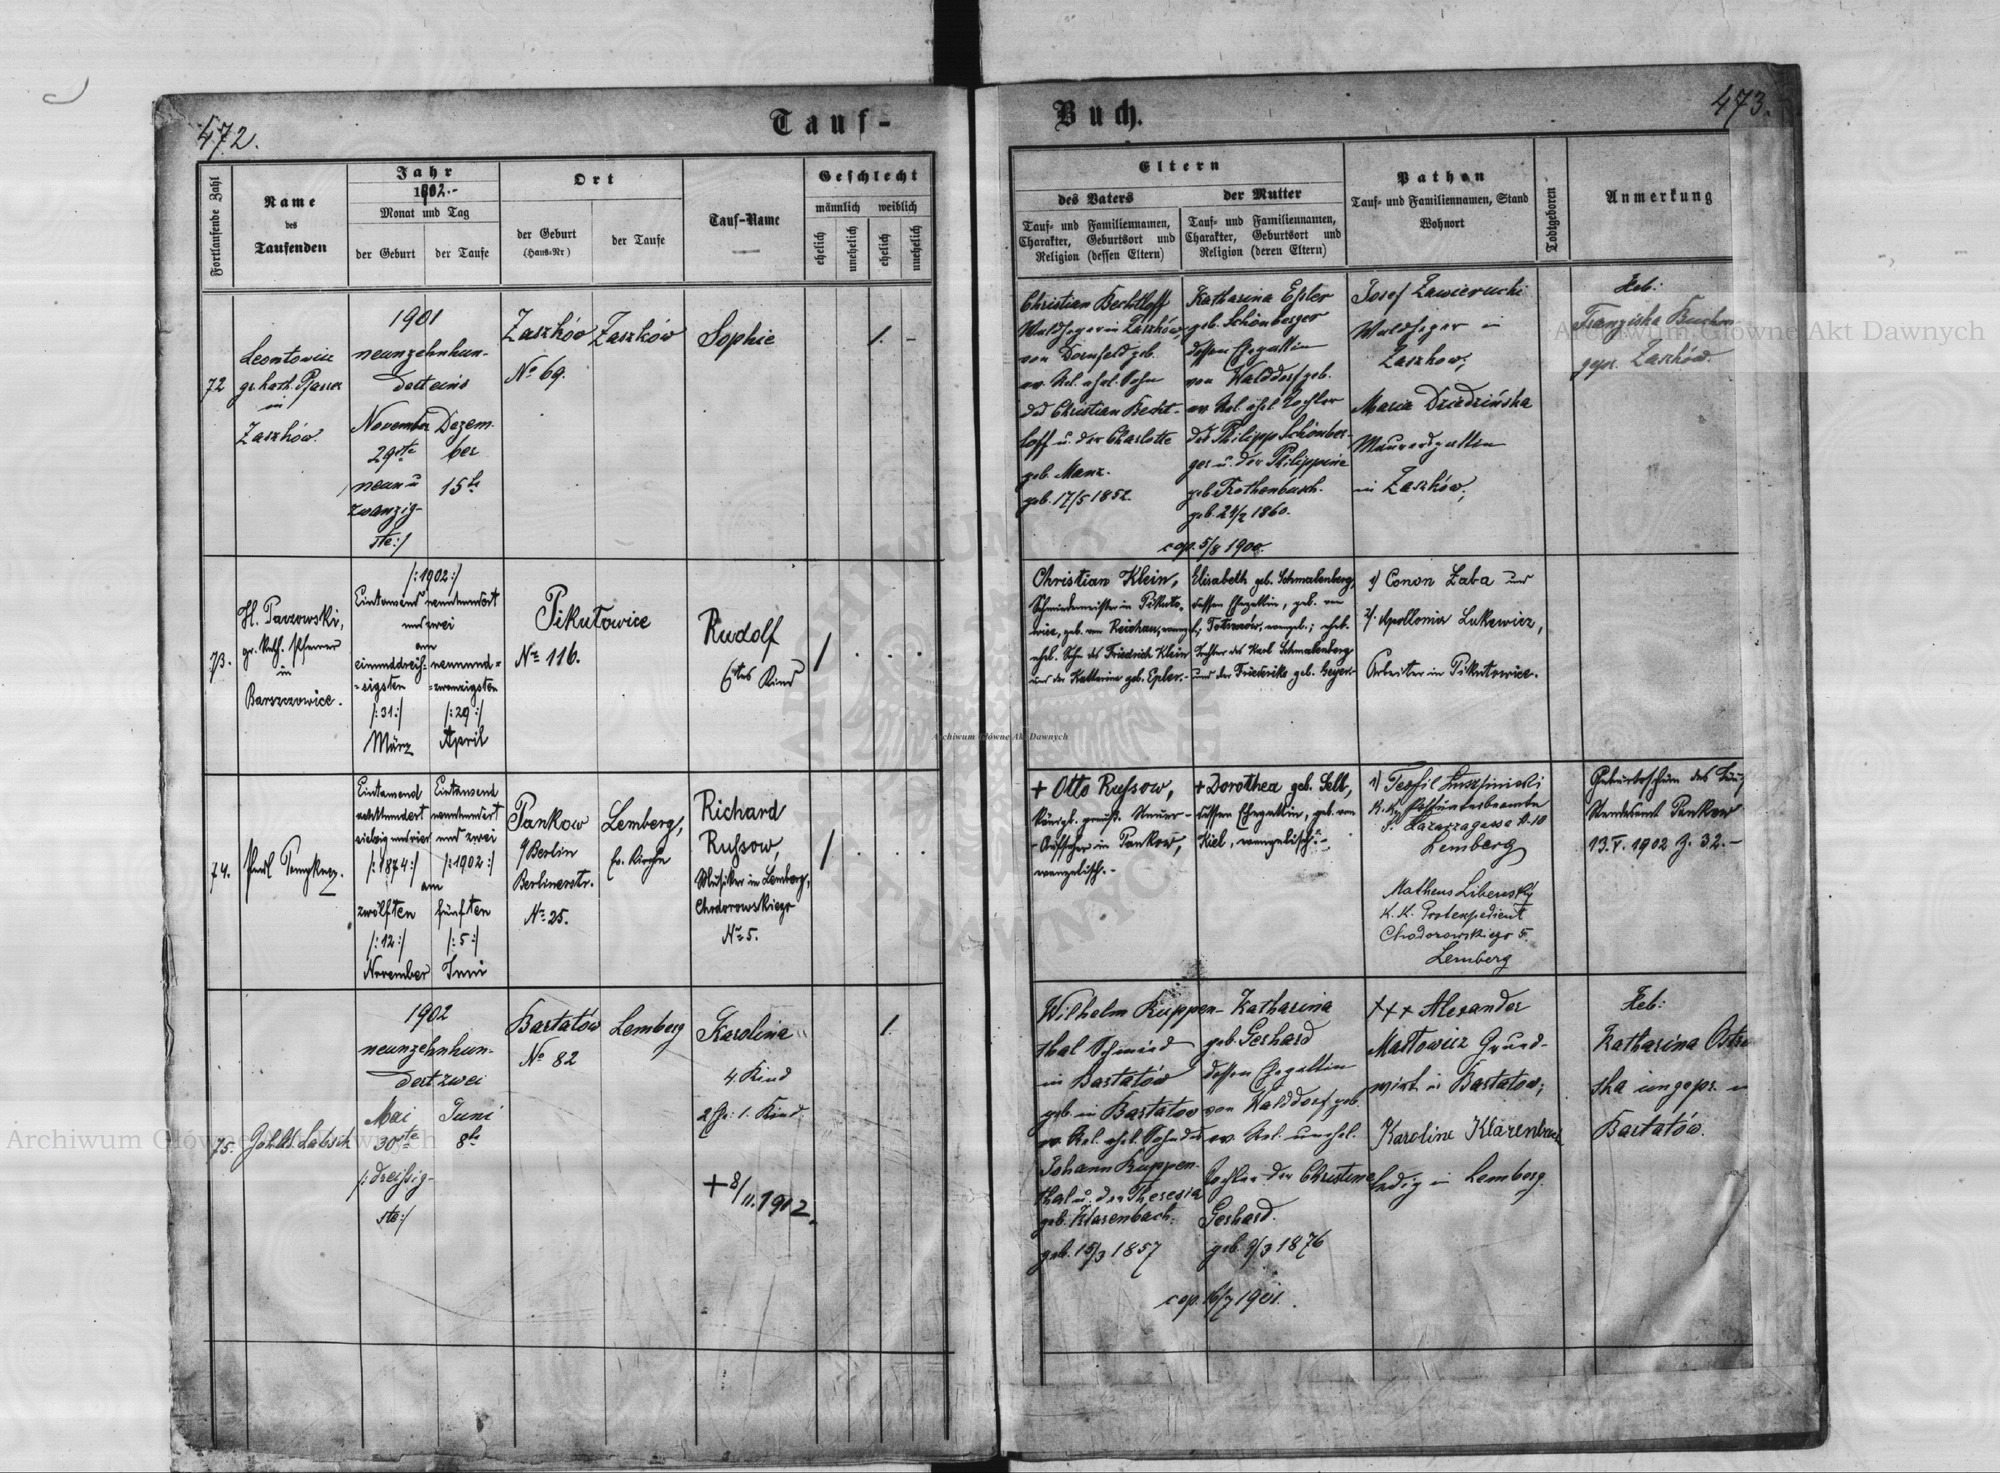 472.
Tauf-
Buch.
473.
Fortlaufende Zahl
Name
des
Taufenden
Jahr
1902.-
Monat und Tag
der Geburt
der Taufe
Ort
der Geburt
(Haus-Nr)
der Taufe
Tauf-Name
Geschlecht
männlich
weiblich
ehelich
unehelich
ehelich
unehelich
Eltern
des Vaters
der Mutter
Tauf- und Familiennamen,
Charakter, Geburtsort und
Religion (dessen Eltern)
Tauf- und Familiennamen,
Charakter, Geburtsort und
Religion (deren Eltern)
Pathen
Tauf- und Familiennamen, Stand
Wohnort
Todtgeboren
Anmerkung
72
Leontowicz
gr. kath. Pfarrer
in
Zaszków.
1901
neunzehnhun-
dert eins
November
29ste
neun u
zwanzig-
ste:/
Dezem-
ber
15te
Zaszków
No 69.
Zaszków
Sophie
1.
-
Christian Bechtloff
Waldheger in Zaszków,
von Dornfeld geb.
ev. Rel. ehel. Sohn
des Christian Becht-
loff u. der Charlotte
geb. Manz.
geb. 17/5 1852.
Katharina Epler
geb. Schönberger
dessen Ehegattin
von Walddorf geb.
ev. Rel. ehel. Tochter
des Philipp Schönber-
ger u. der Philippine
geb. Rothenbusch.
geb. 24/2 1860.
cop. 5/8 1900.
Josef Zawieruchi
Waldheger in
Zaszkow;
Maria Dziedzińska
Maurersgattin
in Zaszków;
Heb:
Franziska
gepr. Zaszków.
73.
H. Parzowski,
gr. kath. Pfarrer
in
Barszczowice.
/:1902:/
Eintausend neunhundert
und zwei
am
einunddreis-
sigsten
/:31:/
März
neunund-
zwanzigsten
/:29:/
April
Pikutowice
Nro 116.
Rudolf
6tes Kind
/
Christian Klein,
Schmiedemeister in Pikuto-
wice, geb. von Reichau, evangel.;
ehel. Sohn des Friedrich Klein
und der Katharina geb. Epler.-
Elisabeth geb. Schmalenberg,
dessen Ehegattin, geb. von
evangel.; ehel.
Tochter des Karl Schmalenberg
und der Friederike geb. Geyer.-
1) Conon Zaba und
2). Apollonia Lukewicz,
Arbeiter in Pikutowice.
74.
Eintausend
achthundert
siebzig und vier
/:1874:/
am
zwölften
/:12:/
November
Eintausend
neunhundert
und zwei
/:1902:/
fünften
/:5:/
Juni
Pankow
b/ Berlin
Berlinerstr.
Nro 25.
Lemberg,
Ev. Kirche
Richard
Russow,
Musiker in Lemberg,
Chodorowskiego
Nro 5.
/
+ Otto Russow,
Königl. preuß. Steuer-
-Aufseher in Pankow,
evangelisch.-
+ Dorothea geb. Selt,
dessen Ehegattin, geb. von
Kiel, evangelisch.-
1)
Lemberg
Matheus Liberesky
K.K. Postexpedient
Chodorowskiego 5.
Lemberg
Geburtsschein des
Standesamt Pankow
13.V. 1902 J. 32.-
75.
1902
neunzehnhun-
dert zwei
Mai
30ste
/:dreißig-
ste:/
Juni
8te
Bartatów
No 82
Lemberg
Karolina
4. Kind
2. Ehe: 1. Kind.
+ 8/11. 1902.
1.
Wilhelm Kuppen-
thal Schmied
in Bartatów
geb. in Bartatow
ev. Rel. ehel. Sohn des
Johann Kuppen-
thal u. der Theresia
geb. Klarenbach.
geb. 15/3 1857
Katharina
geb. Gerhard
dessen Ehegattin
von Walddorf geb.
ev. Rel. unehel.
Tochter der Christine
Gerhard.
geb. 9/3 1876
cop. 16/7 1901.
+++ Alexander
Martowicz Grund-
wirt in Bartatow;
Karoline Klarenbach
ledig in Lemberg.
Heb:
Katharina
ungepr. in
Bartatów.
Archiwum Główne Akt Dawnych
Archiwum Główne Akt Dawnych
Archiwum Główne Akt Dawnych